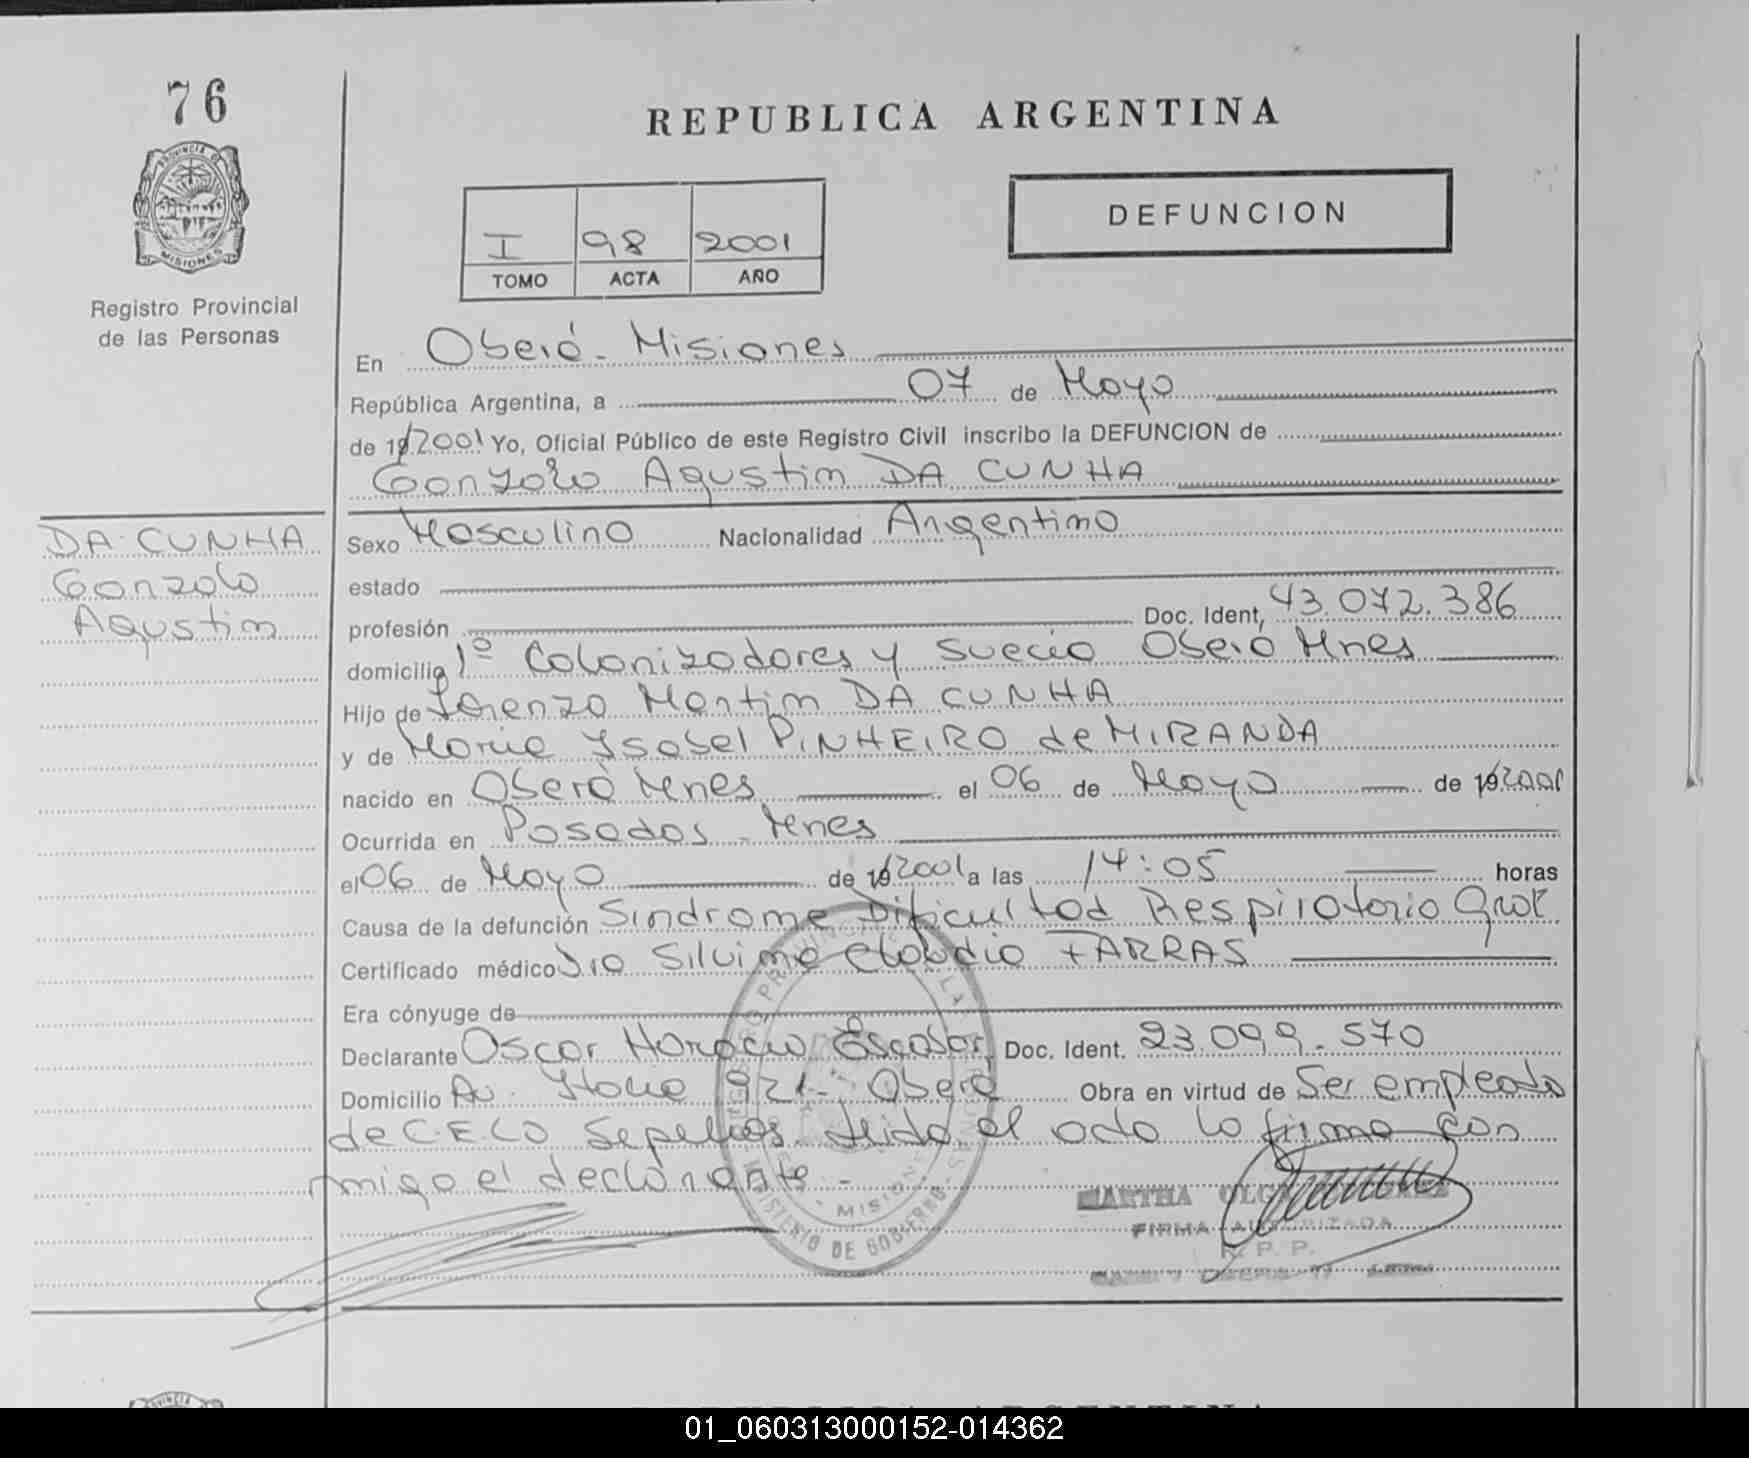 76
REPUBLICA ARGENTINA
PROVINCIA DE
MISIONES
DEFUNCION
I 98 2001
TOMO ACTA AÑO
Registro Provincial
de las Personas
En Oberá - Misiones
República Argentina, a 07 de Mayo
de 19 2001 Yo, Oficial Público de este Registro Civil inscribo la DEFUNCION de
Gonzalo Agustin DA CUNHA
DA CUNHA
Gonzalo
Agustin
Sexo Masculino Nacionalidad Argentino
estado
profesión Doc. Ident, 43.072.386
domicilio 1º Colonizadores y Suecia Oberá Mnes
Hijo de Lorenzo Martin DA CUNHA
y de Maria Ysabel PINHEIRO de MIRANDA
nacido en Oberá Mnes el 06 de Mayo de 19 2001
Ocurrida en Posadas - Mnes
el 06 de Mayo de 19 2001 a las 14:05 horas
Causa de la defunción Sindrome Dificultad Respiratorio
Certificado médico Dra Silvina Claudia FARRAS
Era cónyuge de
Declarante Oscar Horacio Escobar Doc. Ident. 23.099.570
Domicilio Av. Italia 921 - Oberá Obra en virtud de Ser empleado
de C.E.L.O Sepelios. Leida el acta la firma con
migo el declarante. -
MARTHA OLGA
FIRMA AUTORIZADA
R. P. P.
MISIONES
MINISTERIO DE GOBIERNO
PROVINCIA
REPUBLICA ARGENTINA
01_060313000152-014362